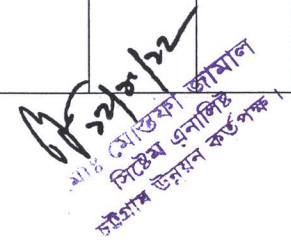 ২২/০৮/২২
মোঃ মোস্তফা জামাল
সিষ্টেম এনালিষ্ট
চট্টগ্রাম উন্নয়ন কর্তৃপক্ষ ।